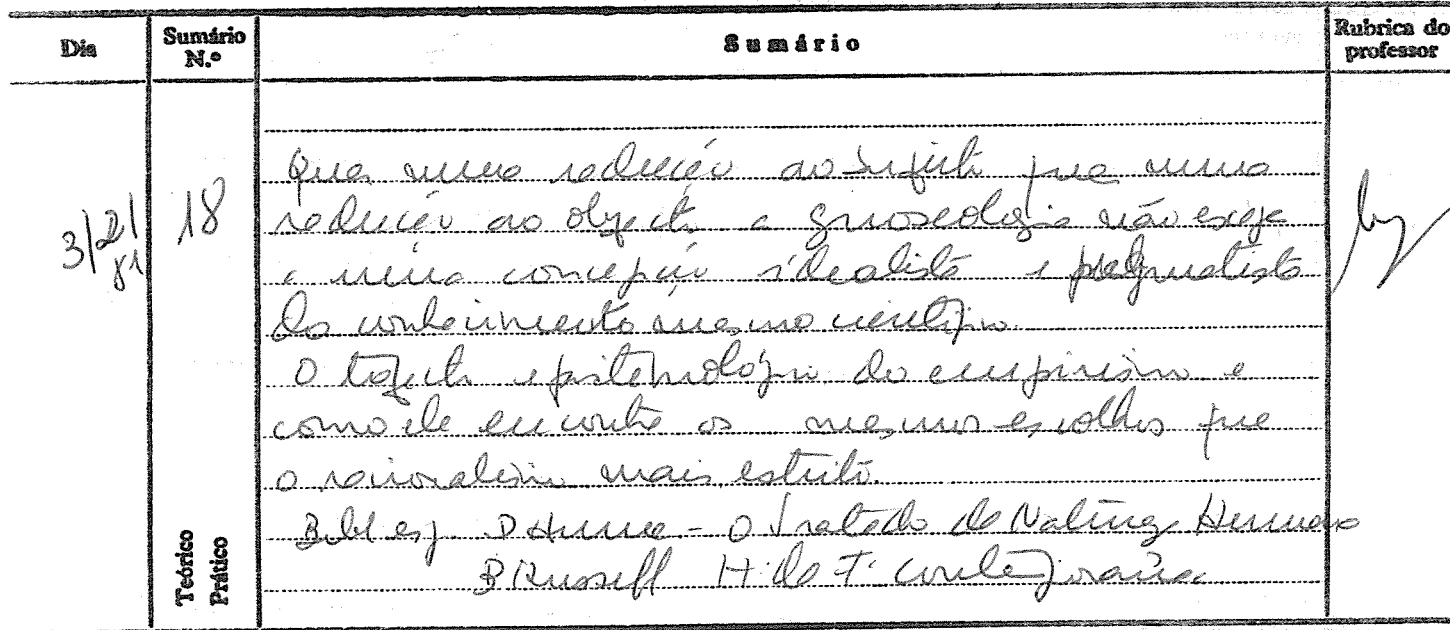 Dia
Sumário N.º
Sumário
Rubrica do professor
3/2/81
18
Quer numa redução ao sujeito quer numa
redução ao objecto a gnoseologia não exige
a uma concepção idealista e pragmatista
do conhecimento mesmo científico.
O trajecto epistemológico do empirismo e
como ele encontra os mesmos escolhos que
o racionalismo mais estrito.
Bibl esp. D Hume - O Tratado de Natureza Humana
B Russell H. de F. contemporânea
Teórico
Prático